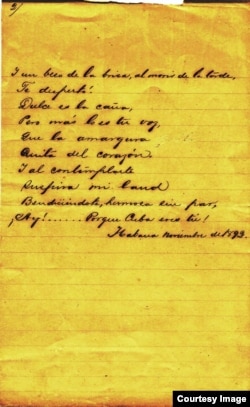 2/
I un beso de la brisa, al morir de la tarde,
Te despertó!
Dulce es la caña,
Pero más lo es tu voz,
Que la amargura
Quita del corazón.
I al contemplarte
Suspira mi laud
Bendiciéndote, hermosa sin par,
¡Ay!...... Porque Cuba eres tú!
Habana Noviembre del 1893.
Courtesy Image